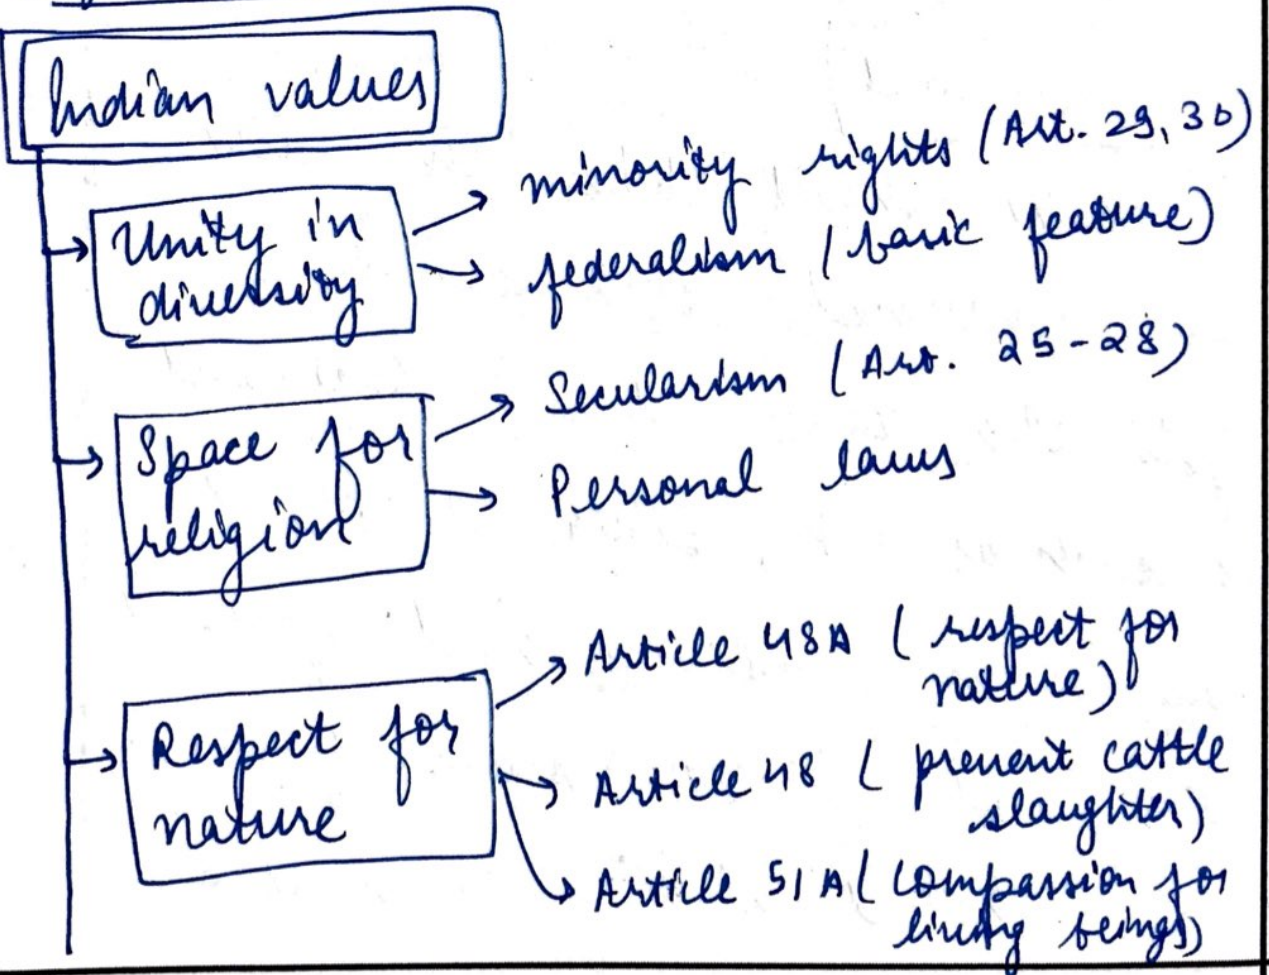 Indian values
Unity in
diversity
minority rights (Art. 29, 30)
federalism (basic feature)
Space for
religion
Secularism (Art. 25-28)
Personal laws
Respect for
nature
Article 48A (respect for
nature)
Article 48 (prevent cattle
slaughter)
Article 51A (compassion for
living beings)